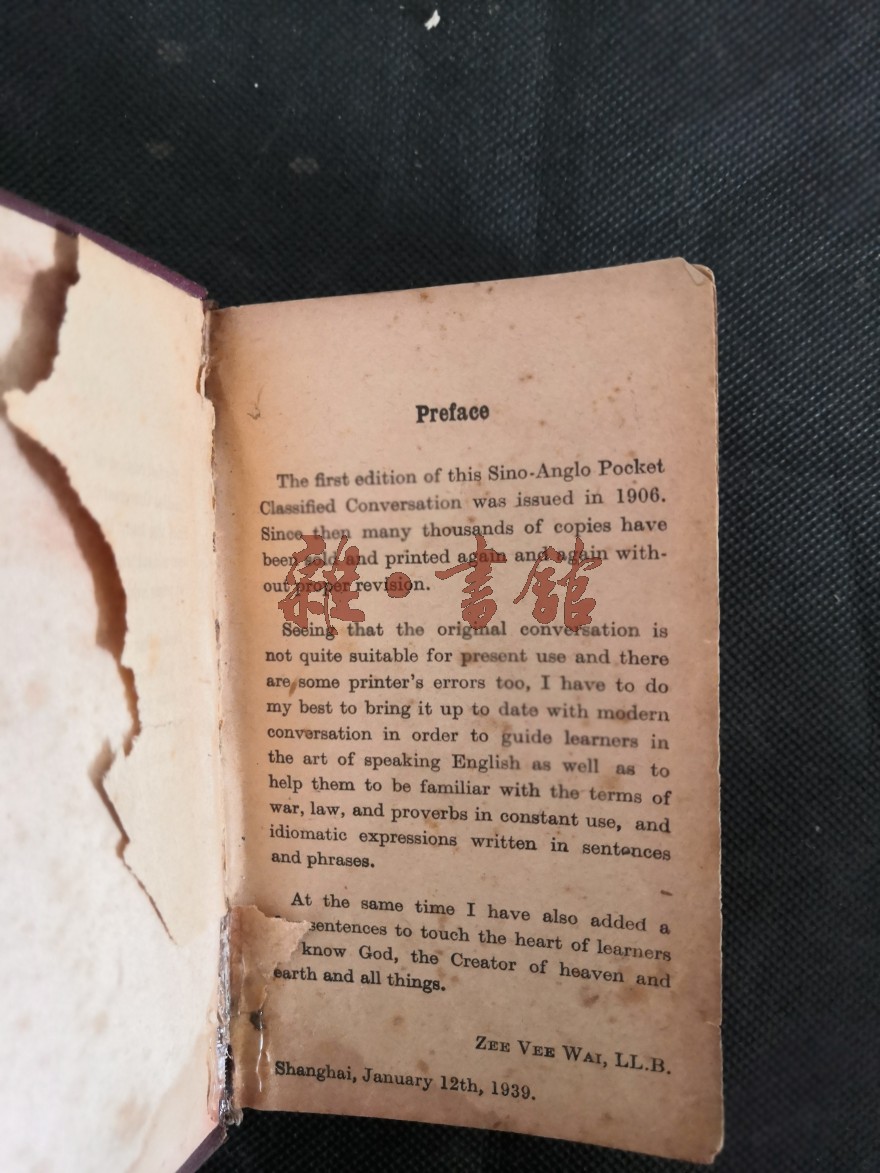 Preface
The first edition of this Sino-Anglo Pocket
Classified Conversation was issued in 1906.
Since then many thousands of copies have
been sold and printed again and again with-
out proper revision.
Seeing that the original conversation is
not quite suitable for present use and there
are some printer's errors too, I have to do
my best to bring it up to date with modern
conversation in order to guide learners in
the art of speaking English as well as to
help them to be familiar with the terms of
war, law, and proverbs in constant use, and
idiomatic expressions written in sentences
and phrases.
At the same time I have also added a
sentences to touch the heart of learners
know God, the Creator of heaven and
earth and all things.
ZEE VEE WAI, LL.B.
Shanghai, January 12th, 1939.
雜·書館